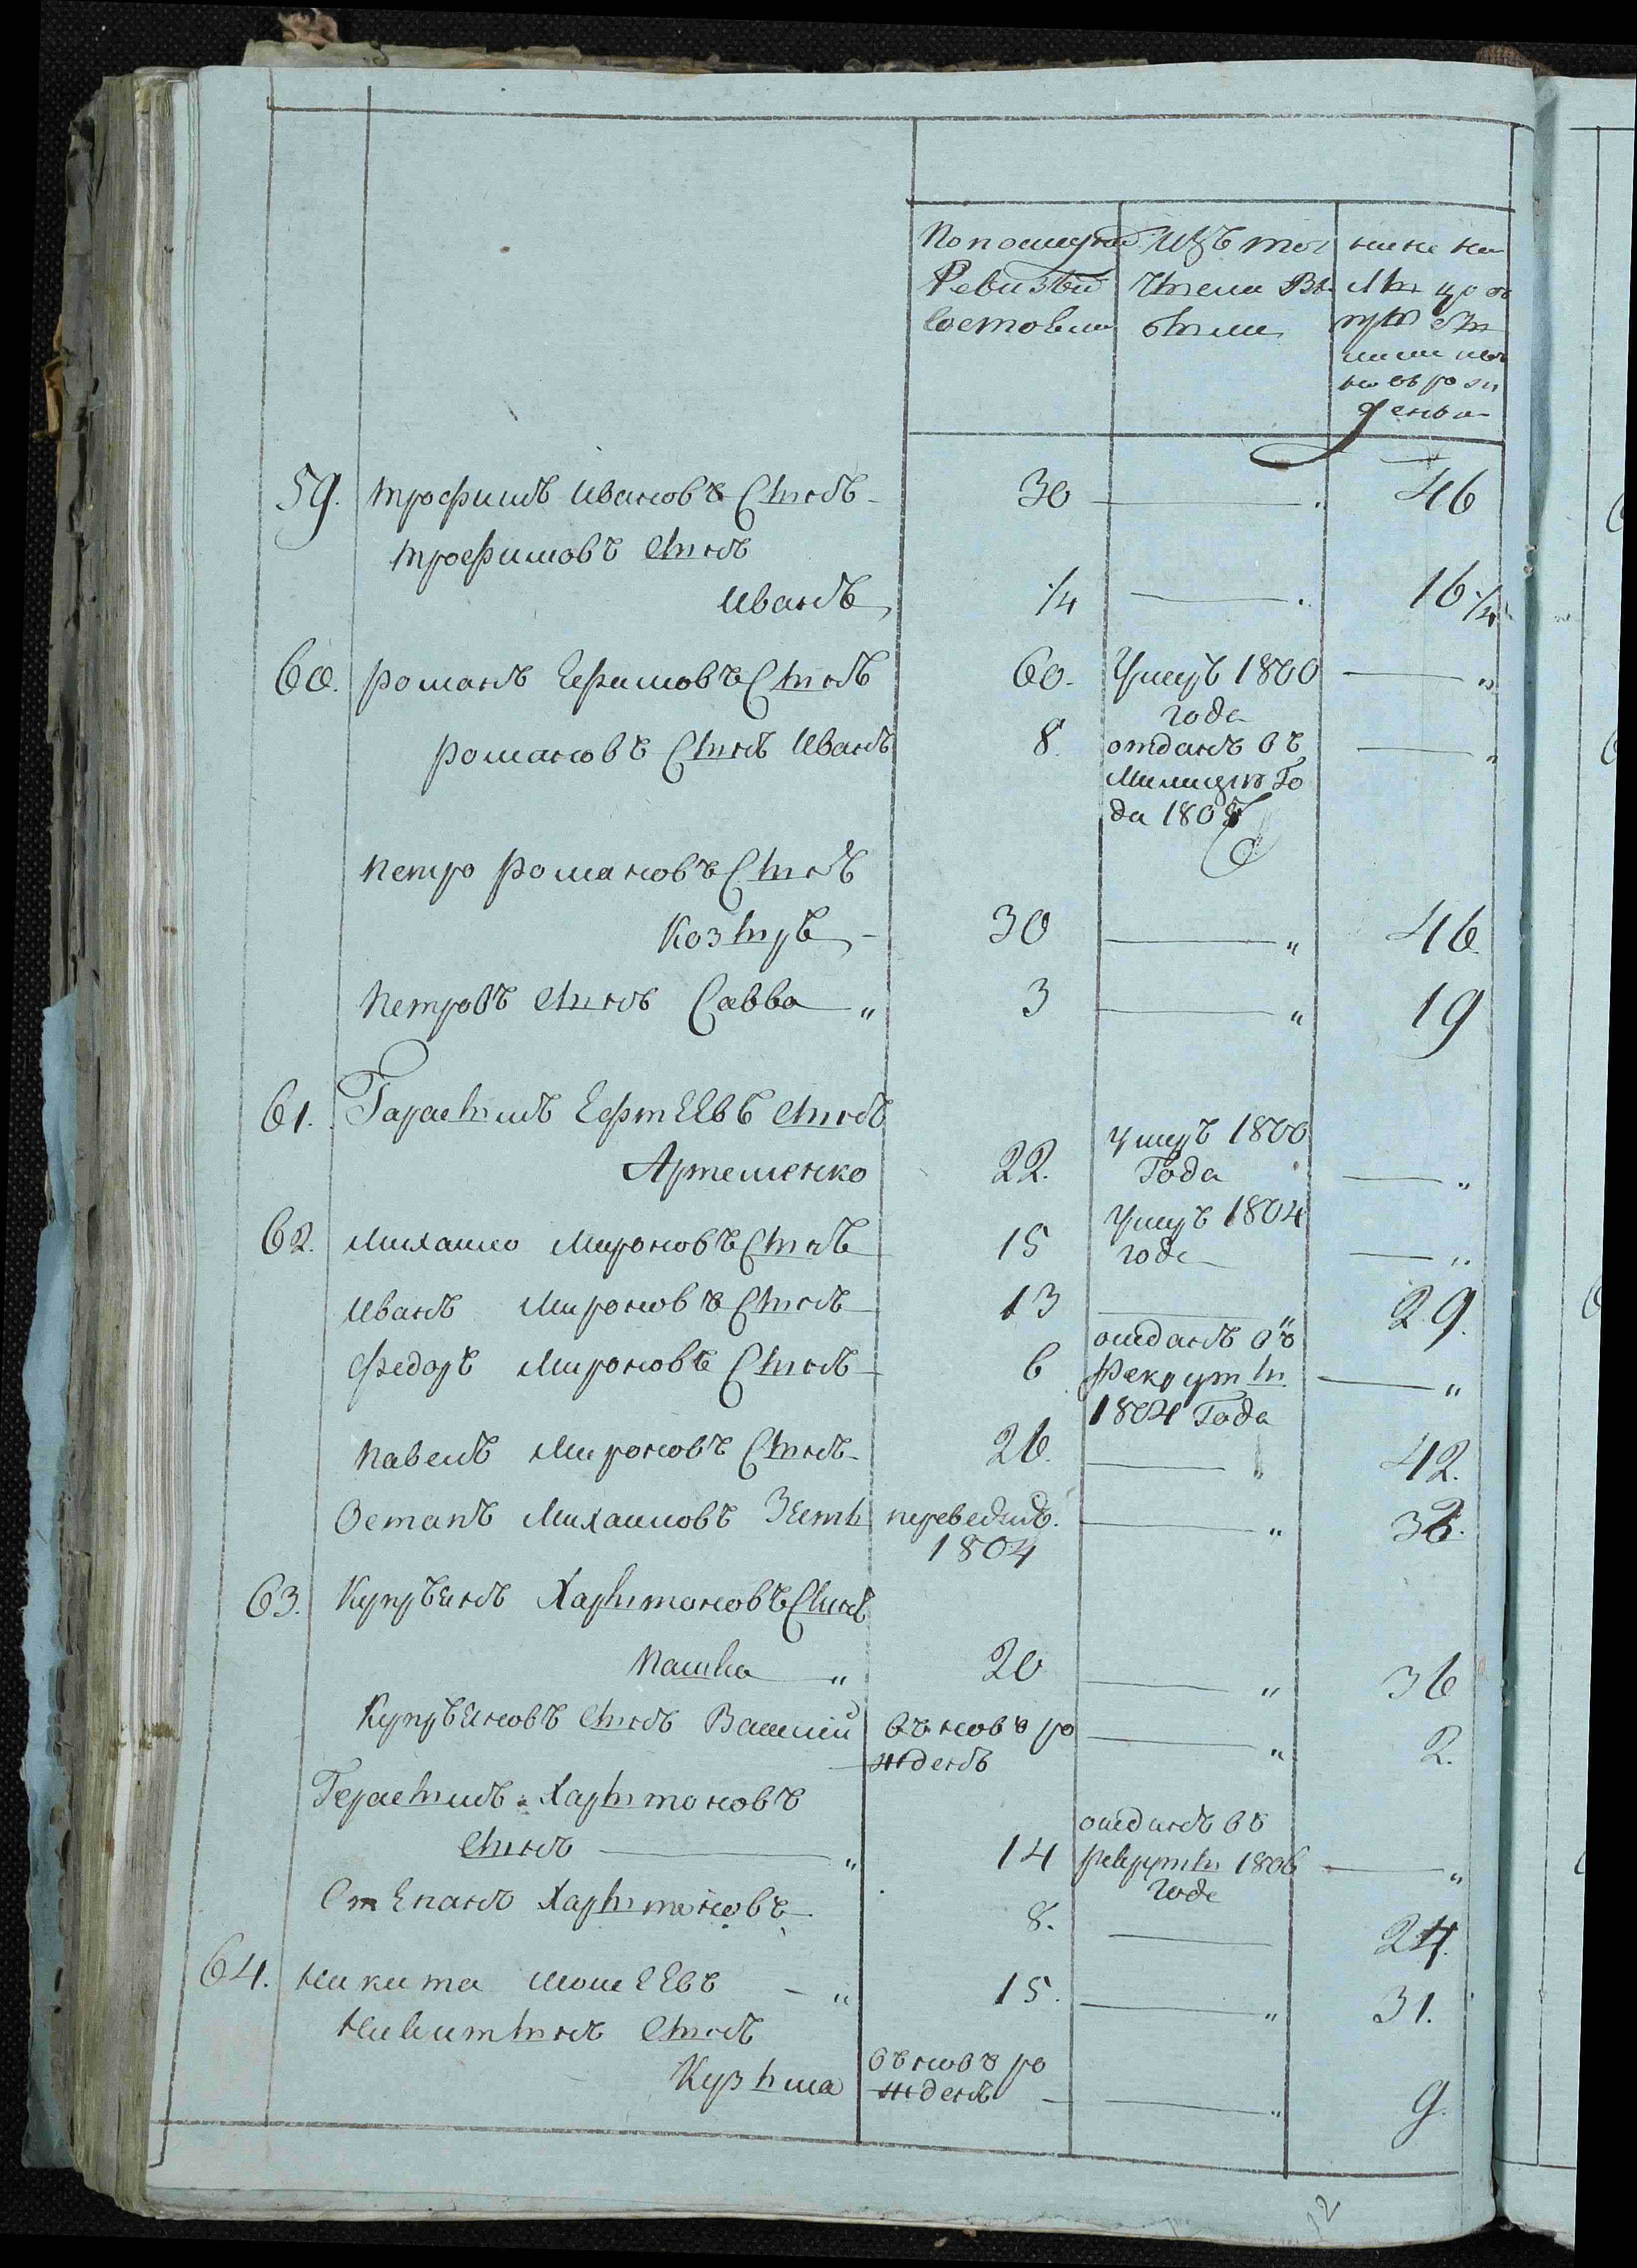 Попоследней
Ревизѣи
Состояли
Изъ того
числа вы
были
ныне на
лицо съ
но въ рож
денъ
59. трофимъ ивановъ Сынъ 30 46
трофимовъ сынъ
иванъ ¼ 16 ¼
60. романъ Ефимовъ Сынъ 60. умеръ 1800
года
романовъ Сынъ иванъ 8. отданъ въ
милицию Го
да 180
петро романовъ Сынъ
Козыръ 30 46
петровъ сынъ Савва 3 19
61. Гарасымъ Ефтеевъ сынъ
Артеменко 22. умеръ 1800
Года
62. михаило мироновъ Сынъ 15 умеръ 1804
года
иванъ мироновъ Сынъ 13 29.
федоръ мироновъ Сынъ 6 отданъ въ
рекруты
1804 Года
павелъ мироновъ Сынъ 26. 42.
Остапъ михаиловъ Зеть переведенъ. 32.
1804
63. Купръянъ Харытоновъ Сынъ
Пашка 20 36
Купръяновъ сынъ Василий въновъ ро 2.
жденъ
Герасымъ Харытоновъ
сынъ 14 отданъ въ
рекруты 1806
года
Степанъ Харытоновъ 8. 24.
64. никита мошеевъ 15. 31.
никитынъ сынъ
Кузьма въновъ ро
жденъ 9.
12